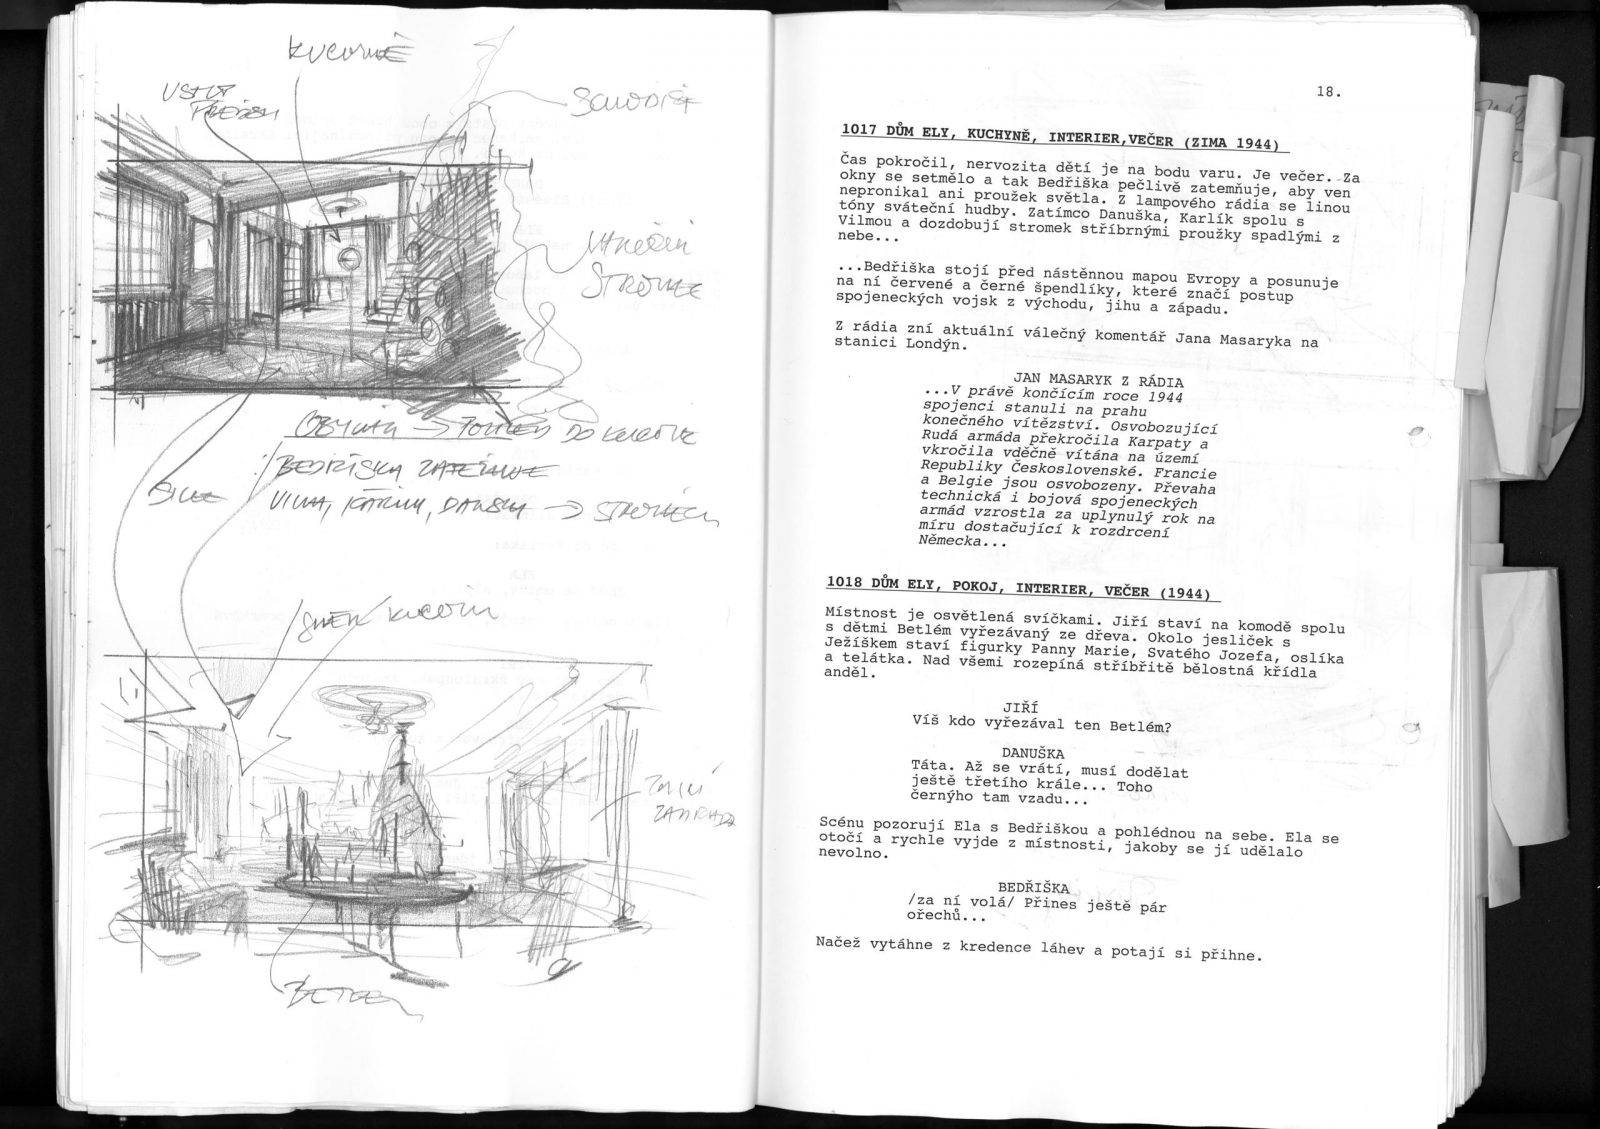 KUCHYNĚ
SCHODIŠ
STROMEK
OBÝVÁK → POHLED DO KUCHYNĚ
BEDŘIŠKA ZATEMŇUJE
VILMA, KARLÍK, DANUŠKA → STROMEČEK
SMĚR KUCHYNĚ
ZIMNÍ
ZAHRADA
BETLÉM
18.
1017 DŮM ELY, KUCHYNĚ, INTERIER,VEČER (ZIMA 1944)
Čas pokročil, nervozita dětí je na bodu varu. Je večer. Za
okny se setmělo a tak Bedřiška pečlivě zatemňuje, aby ven
nepronikal ani proužek světla. Z lampového rádia se linou
tóny sváteční hudby. Zatímco Danuška, Karlík spolu s
Vilmou a dozdobují stromek stříbrnými proužky spadlými z
nebe...
...Bedřiška stojí před nástěnnou mapou Evropy a posunuje
na ní červené a černé špendlíky, které značí postup
spojeneckých vojsk z východu, jihu a západu.
Z rádia zní aktuální válečný komentář Jana Masaryka na
stanici Londýn.
JAN MASARYK Z RÁDIA
...V právě končícím roce 1944
spojenci stanuli na prahu
konečného vítězství. Osvobozující
Rudá armáda překročila Karpaty a
vkročila vděčně vítána na území
Republiky Československé. Francie
a Belgie jsou osvobozeny. Převaha
technická i bojová spojeneckých
armád vzrostla za uplynulý rok na
míru dostačující k rozdrcení
Německa...
1018 DŮM ELY, POKOJ, INTERIER, VEČER (1944)
Místnost je osvětlená svíčkami. Jiří staví na komodě spolu
s dětmi Betlém vyřezávaný ze dřeva. Okolo jesliček s
Ježíškem staví figurky Panny Marie, Svatého Jozefa, oslíka
a telátka. Nad všemi rozepíná stříbřitě bělostná křídla
anděl.
JIŘÍ
Víš kdo vyřezával ten Betlém?
DANUŠKA
Táta. Až se vrátí, musí dodělat
ještě třetího krále... Toho
černýho tam vzadu...
Scénu pozorují Ela s Bedřiškou a pohlédnou na sebe. Ela se
otočí a rychle vyjde z místnosti, jakoby se jí udělalo
nevolno.
BEDŘIŠKA
/za ní volá/ Přines ještě pár
ořechů...
Načež vytáhne z kredence láhev a potají si přihne.